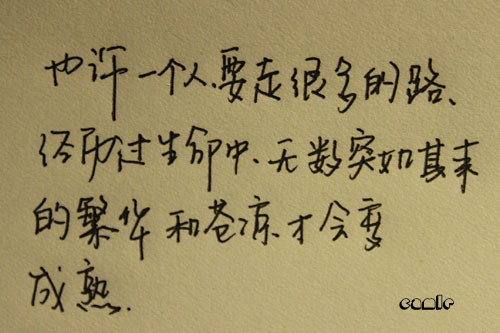 也许一个人、要走很多的路、
经历过生命中、无数突如其来
的繁华和苍凉.才会变
成熟.
comic